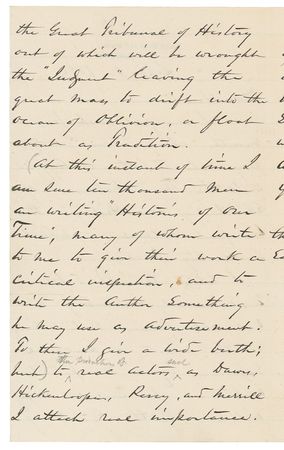 the Great Tribunal of History
out of which will be wrought
the "Judgmt" leaving the
great mass to drift into the
ocean of Oblivion, or float
about as Tradition.
(At this instant of time I
am sure ten thousand men
are writing "Historis of Our
Time", many of whom write
to me to give their work a
critical inspection, and to
write the Author Something
he may use as advertisement.
To them I give a wide berth;
but) to real actors, as Dawes,
Hickenlooper, Reavy, and Merrill
I attach real importance.